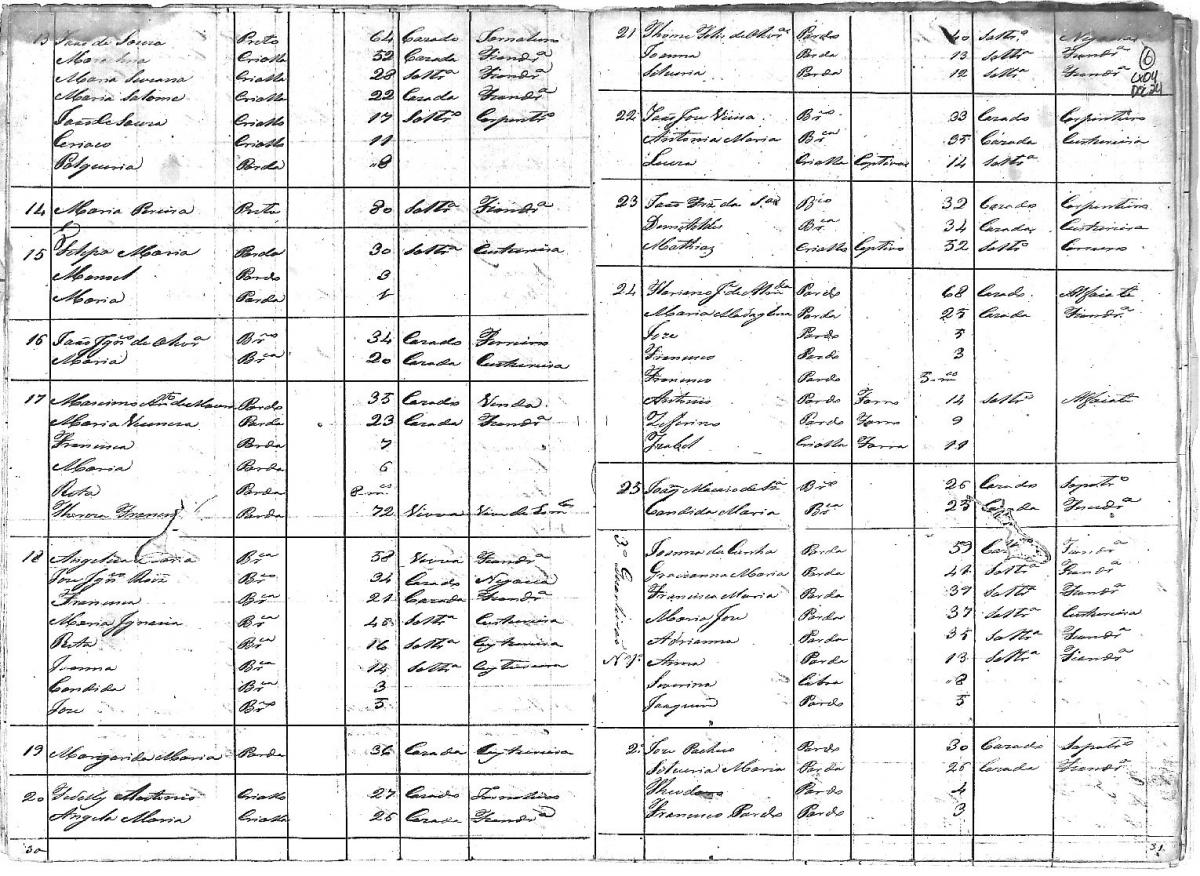 13 João de Souza Preto 64 Cazado
Crioilla 52 Cazada Fiandrª
Maria Crioilla 28 Soltrª Fiandrª
Maria Salome Crioilla 22 Cazada Fiandrª
João de Souza Crioillo 17 Soltrº Carpentrº
Ceriaco Crioillo 11
Polqueria Parda 8
14 Maria Pereira Preta 80 Soltrª Fiandrª
15 Felipa Maria Parda 30 Soltrª Custureira
Manoel Pardo 3
Maria Parda 1
16 João Ignº de Olivrª Brº 34 Cazado Ferreiro
Maria Brca 20 Cazada Custureira
17 Pardo 35 Cazado Venda
Maria Parda 23 Cazada Fiandrª
Francisca Parda 7
Maria Parda 6
Rita Parda 8 mes
Thereza Parda 72 Viuva Vive de
18 Angelica Maria Brca 58 Viuva Fiandrª
Jose Ignº Brco 34 Cazado Negocia
Francisca Brca 21 Cazada Fiandrª
Maria Ignacia Brca 45 Soltrª Custureira
Rita Brca 16 Soltrª Custureira
Joanna Brca 14 Soltrª Custureira
Candida Brca 3
Jose Brco 5
19 Margarida Maria Parda 36 Cazada Custureira
20 Antonio Crioillo 27 Cazado
Angela Maria Crioilla 26 Cazada Fiandrª
30
21 Thome de Olivrª Pardo 40 Soltrº Negocia
Joanna Parda 13 Soltrª Fiandrª
Silveria Parda 12 Soltrª Fiandrª
6
22 João Jose Vieira Brco 33 Cazado Carpenteiro
Antonia Maria Brca 35 Cazada Custureira
Luiza Crioilla Captiva 14 Soltrª
23 João da Sª Brco 32 Cazado Carpenteiro
Brca 34 Cazada Custureira
Mathias Crioillo Captivo 52 Soltrº
24 Mariano Pardo 68 Cazado Alfaiate
Maria Magdalena Parda 25 Cazada Fiandrª
Jose Pardo 5
Francisco Pardo 3
Francisco Pardo 5 mes
Antonio Pardo Forro 14 Soltrº Alfaiate
Zeferino Pardo Forro 9
Izabel Crioilla Forra 11
25 João Macario de Brco 26 Cazado Sapatrº
Candida Maria Brca 23 Cazada Fiandrª
3º Quarteirão Nº
1º Joanna da Cunha Parda 59 Fiandrª
Gracianna Maria Parda 41 Soltrª Fiandrª
Francisca Maria Parda 39 Soltrª Fiandrª
Maria Jose Parda 37 Soltrª Custureira
Adrianna Parda 35 Soltrª Fiandrª
Anna Parda 13 Soltrª Fiandrª
Severina Cabra 8
Joaquim Pardo 5
2º Jose Pacheco Pardo 30 Cazado Sapatrº
Silveria Maria Parda 26 Cazada Fiandrª
Theodoro Pardo 4
Francisco Pardo Pardo 3
31